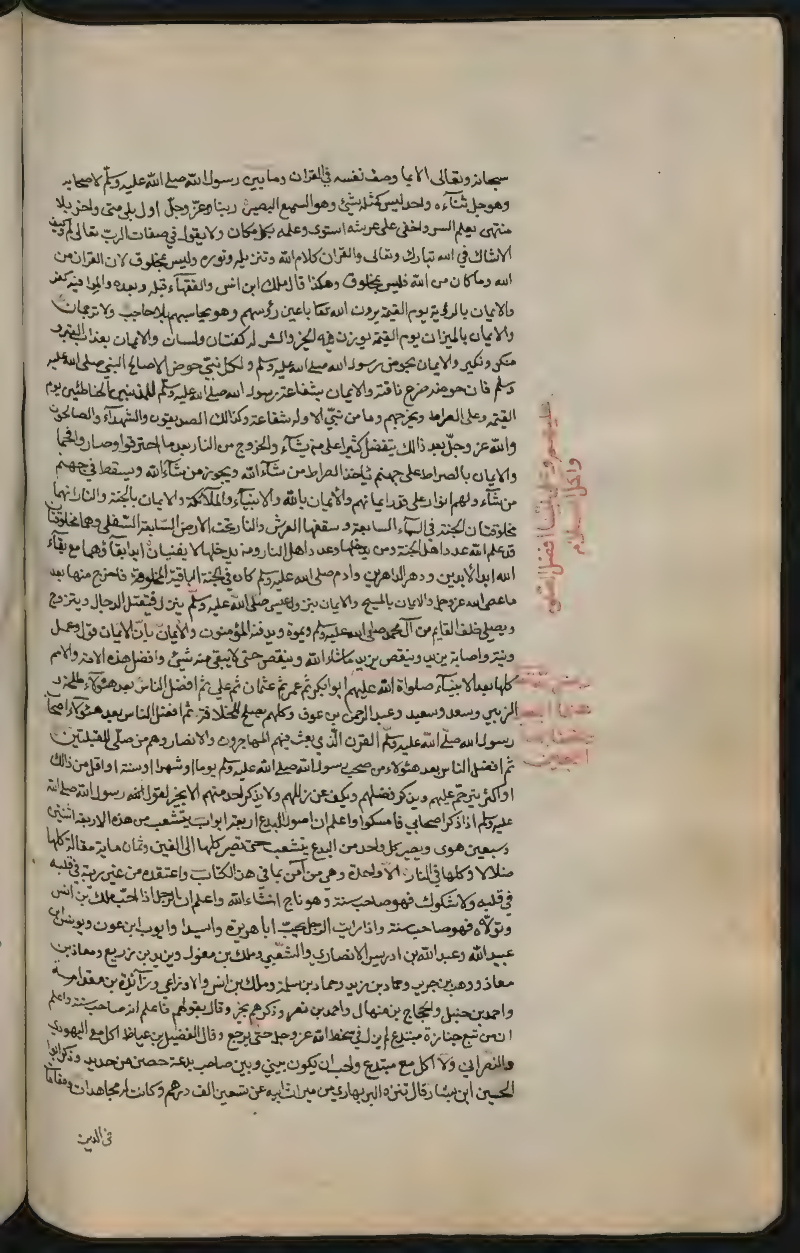 سبحانه وتعالى الا بما وصف نفسه في القران وما بين رسول الله صلى الله عليه وسلم لاصحابه
وهو جل ثناءه واحد ليس كمثله شيئ وهو السميع البصير ربنا وعز وجل اول بلى متى واخر بلا
منتهى يعلم السر واخفى على عرشه استوى وعلمه بكل مكان ولا يقول في صفات الرب تعالى لم وكيف
الا شاك في الله تبارك وتعالى والقران كلام الله وتنزيله ونوره وليس بمخلوق لان القران من
الله وما كان من الله فليس بمخلوق وهكذا قال ملك ابن انس والفقهاء قبله وبعده والمرا فيه كفر
والايمان بالرؤية يوم القيمة يرون الله تعا باعين رؤسهم وهو يحاسبهم بلا حاجب ولا ترجمان
والايمان بالميزان يوم القيمة يوزن فيه الخير والشر له كفتان ولسان والايمان بعذاب القبر و
منكر ونكير والايمان بحوض رسول الله صلى الله عليه وسلم ولكل نبي حوض الا صالح النبي صلى الله عليه
وسلم فان حوضه ضرع ناقته والايمان بشفاعة رسول الله صلى الله عليه وسلم للمذنبين الخاطئين يوم
القيمة وعلى الصراط ويخرجهم وما من نبي الا وله شفاعة وكذالك الصديقون والشهداء والصالحون
والله عز وجل بعد ذالك يتفضل كثيرا على من يشآء والخروج من النار بعد ما احترقوا وصاروا فحما
والايمان بالصراط على جهنم ياخذ الصراط من شآء الله ويجوز من شآء الله ويسقط في جهنم
من شآء ولهم انوار على قدر ايمانهم والايمان بالله والانبياء والملآئكة والايمان بالجنة والنار انهما
مخلوقتان الجنة في السمآء السابعة وسقفها العرش والنار تحت الارض السابعة السفلى وهما مخلوقتان
قد علم الله عدد اهل الجنة ومن يدخلها وعدد اهل النار ومن يدخلها لا يفنيان ابدا بقاؤهما مع بقآء
الله ابد الابدين ودهر الداهرين وادم صلى الله عليه وسلم كان في الجنة الباقية المخلوقة فاخرج منها بعد
ما عصى الله عز وجل والايمان بالمسيح والايمان بنزول عيسى صلى الله عليه وسلم ينزل فيقتل الدجال ويتزوج
ويصلي خلف القايم من آل محمد صلى الله عليه وسلم ويموة ويدفنه المؤمنون والايمان بان الايمان قول وعمل
ونية واصابة يزيد وينقص يزيد ماشاء الله وينقص حتى لا يبقى منه شيئ وافضل هذه الامة والامم
كلها بعد الانبياء صلواة الله عليهم ابو بكر ثم عمر ثم عثمان ثم علي ثم افضل الناس بعد هئولاء طلحة و
الزبير وسعد وسعيد وعبد الرحمن بن عوف وكلهم يصلح للخلافة ثم افضل الناس بعد هئولاء اصحاب
رسول الله صلى الله عليه وسلم القرن الذي بعث فيهم المهاجرون والانصار وهم من صلى للقبلتين
ثم افضل الناس بعد هئولاء من صحب رسول الله صلى الله عليه وسلم يوما او شهرا او سنة او اقل من ذالك
او اكثر يترحم عليهم ويذكر فضلهم ويكف عن زللهم ولا يذكر احد منهم الا بخير لقول رسول الله صلى الله
عليه وسلم اذا ذكر اصحابي فامسكوا واعلم ان اصول البدع اربعة ابواب يتشعب من هذه الاربعة اثنين
وسبعين هوى ويصير كل واحد من البدع يتشعب حتى تصير كلها الى الفين وثمان ماية مقالة كلها
ضلالا وكلها في النار الا واحدة وهي من آمن بما في هذا الكتاب واعتقده من غير ريبة في قلبه
في قلبه ولا شكوك فهو صاحب سنة وهو ناج انشاء الله واعلم ان الرجل اذا احب ملك بن انس
وتولاه فهو صاحب سنة واذا رايت الرجل يحب ابا هريرة واسيدا وايوب ابن عون ويونس بن
عبيد الله وعبد الله بن ادريس الانصاري والشعبي وملك بن مغول ويزيد بن زريع ومعاذ بن
معاذ ووهب بن جرير وحماد بن زيد وحماد بن سلمة وملك بن انس والاوزاعي وزآئدة بن قدامة
واحمد بن حنبل والحجاج بن منهال واحمد بن نصر وذكرهم بخير وقال بقولهم فاعلم انه صاحب سنة واعلم
ان من تبع جنازة مبتدع لم يزل في سخط الله عز وجل حتى يرجع وقال الفضيل بن عياظ اكل مع اليهودي
والنصراني ولا اكل مع مبتدع واحب ان يكون بيني وبين صاحب بدعة حصن من حديد وذكر ابوا
الحسين ابن بشار قال تنزه البربهاري من ميراث ابيه عن تسعين الف درهم وكانت له مجاهدات ومقاماة
في الدين
عليهم وعلى نبينا افضل الصلوة
واكمل السلام